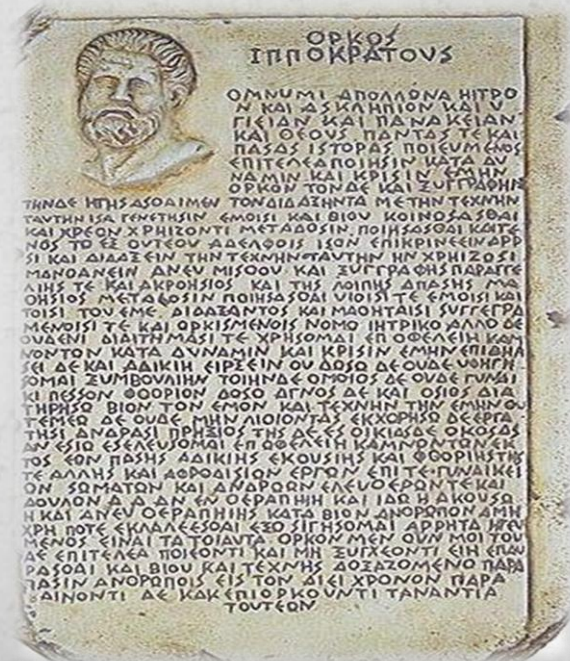 ΟΡΚΟΣ
ΙΠΠΟΚΡΑΤΟΥΣ
ΟΜΝΥΜΙ ΑΠΟΛΛΩΝΑ ΗΙΤΡΟ
Ν ΚΑΙ ΑΣΚΛΗΠΙΟΝ ΚΑΙ Υ
ΓΙΕΙΑΝ ΚΑΙ ΠΑΝΑΚΕΙΑΝ
ΚΑΙ ΘΕΟΥΣ ΠΑΝΤΑΣ ΤΕ ΚΑΙ
ΠΑΣΑΣ ΙΣΤΟΡΑΣ ΠΟΙΕΥΜΕΝΟΣ
ΕΠΙΤΕΛΕΑ ΠΟΙΗΣΙΝ ΚΑΤΑ ΔΥ
ΝΑΜΙΝ ΚΑΙ ΚΡΙΣΙΝ ΕΜΗΝ
ΟΡΚΟΝ ΤΟΝΔΕ ΚΑΙ ΞΥΓΓΡΑΦΗΝ
ΤΗΝΔΕ ΗΓΗΣΑΣΘΑΙ ΜΕΝ ΤΟΝ ΔΙΔΑΞΗΝΤΑ ΜΕ ΤΗΝ ΤΕΧΝΗΝ
ΤΑΥΤΗΝ ΙΣΑ ΓΕΝΕΤΗΣΙΝ ΕΜΟΙΣΙ ΚΑΙ ΒΙΟΥ ΚΟΙΝΩΣΑΣΘΑΙ
ΚΑΙ ΧΡΕΩΝ ΧΡΗΙΖΟΝΤΙ ΜΕΤΑΔΟΣΙΝ ΠΟΙΗΣΑΣΘΑΙ ΚΑΙ ΓΕ
ΝΟΣ ΤΟ ΕΞ ΟΥΤΕΟΥ ΑΔΕΛΦΟΙΣ ΙΣΟΝ ΕΠΙΚΡΙΝΕΕΙΝ ΑΡΡ
ΣΙ ΚΑΙ ΔΙΔΑΞΕΙΝ ΤΗΝ ΤΕΧΝΗΝ ΤΑΥΤΗΝ ΗΝ ΧΡΗΙΖΩΣΙ
ΜΑΝΘΑΝΕΙΝ ΑΝΕΥ ΜΙΣΘΟΥ ΚΑΙ ΞΥΓΓΡΑΦΗΣ ΠΑΡΑΓΓΕ
ΛΙΗΣ ΤΕ ΚΑΙ ΑΚΡΟΗΣΙΟΣ ΚΑΙ ΤΗΣ ΛΟΙΠΗΣ ΑΠΑΣΗΣ ΜΑ
ΘΗΣΙΟΣ ΜΕΤΑΔΟΣΙΝ ΠΟΙΗΣΑΣΘΑΙ ΥΙΟΙΣΙ ΤΕ ΕΜΟΙΣΙ ΚΑΙ
ΤΟΙΣΙ ΤΟΥ ΕΜΕ ΔΙΔΑΞΑΝΤΟΣ ΚΑΙ ΜΑΘΗΤΑΙΣΙ ΣΥΓΓΕΓΡΑ
ΜΕΝΟΙΣΙ ΤΕ ΚΑΙ ΟΡΚΙΣΜΕΝΟΙΣ ΝΟΜΟ ΙΗΤΡΙΚΟ ΑΛΛΟ ΔΕ
ΟΥΔΕΝΙ ΔΙΑΙΤΗΜΑΣΙ ΤΕ ΧΡΗΣΟΜΑΙ ΕΠ ΟΦΕΛΕΙΗ ΚΑΜ
ΝΟΝΤΩΝ ΚΑΤΑ ΔΥΝΑΜΙΝ ΚΑΙ ΚΡΙΣΙΝ ΕΜΗΝ ΕΠΙ ΔΗΛΗ
ΣΕΙ ΔΕ ΚΑΙ ΑΔΙΚΙΗ ΕΙΡΞΕΙΝ ΟΥ ΔΩΣΩ ΔΕ ΟΥΔΕ ΥΦΗΓΗ
ΣΟΜΑΙ ΞΥΜΒΟΥΛΙΗΝ ΤΟΙΗΝΔΕ ΟΜΟΙΟΣ ΔΕ ΟΥΔΕ ΓΥΝΑΙ
ΚΙ ΠΕΣΣΟΝ ΦΘΟΡΙΟΝ ΔΩΣΩ ΑΓΝΟΣ ΔΕ ΚΑΙ ΟΣΙΟΣ ΔΙΑ
ΤΗΡΗΣΩ ΒΙΟΝ ΤΟΝ ΕΜΟΝ ΚΑΙ ΤΕΧΝΗΝ ΤΗΝ ΕΜΗΝ ΟΥ
ΤΕΜΕΩ ΔΕ ΟΥΔΕ ΜΗΝ ΛΙΘΙΟΝΤΑΣ ΕΚΧΩΡΗΣΩ ΔΕ ΕΡΓΑ
ΤΗΣΙ ΑΝΔΡΑΣΙ ΠΡΗΞΙΟΣ ΤΗΣ ΔΕ ΟΙΚΙΑΣ ΔΕ ΟΚΟΣΑΣ
ΑΝ ΕΣΙΩ ΕΣΕΛΕΥΣΟΜΑΙ ΕΠ ΩΦΕΛΕΙΗ ΚΑΜΝΟΝΤΩΝ ΕΚ
ΤΟΣ ΕΩΝ ΠΑΣΗΣ ΑΔΙΚΙΗΣ ΕΚΟΥΣΙΗΣ ΚΑΙ ΦΘΟΡΙΗΣ ΤΗΣ
ΤΕ ΑΛΛΗΣ ΚΑΙ ΑΦΡΟΔΙΣΙΩΝ ΕΡΓΩΝ ΕΠΙ ΤΕ ΓΥΝΑΙΚΕΙ
ΩΝ ΣΩΜΑΤΩΝ ΚΑΙ ΑΝΔΡΩΩΝ ΕΛΕΥΘΕΡΩΝ ΤΕ ΚΑΙ
ΔΟΥΛΩΝ Α Δ ΑΝ ΕΝ ΘΕΡΑΠΗΙΗ ΚΑΙ ΙΔΩ Η ΑΚΟΥΣΩ
Η ΚΑΙ ΑΝΕΥ ΘΕΡΑΠΗΙΗΣ ΚΑΤΑ ΒΙΟΝ ΑΝΘΡΩΠΩΝ Α ΜΗ
ΧΡΗ ΠΟΤΕ ΕΚΛΑΛΕΕΣΘΑΙ ΕΞΩ ΣΙΓΗΣΟΜΑΙ ΑΡΡΗΤΑ ΗΓΕΥ
ΜΕΝΟΣ ΕΙΝΑΙ ΤΑ ΤΟΙΑΥΤΑ ΟΡΚΟΝ ΜΕΝ ΟΥΝ ΜΟΙ ΤΟΥ
ΔΕ ΕΠΙΤΕΛΕΑ ΠΟΙΕΟΝΤΙ ΚΑΙ ΜΗ ΞΥΓΧΕΟΝΤΙ ΕΙΗ ΕΠΑΥ
ΡΑΣΘΑΙ ΚΑΙ ΒΙΟΥ ΚΑΙ ΤΕΧΝΗΣ ΔΟΞΑΖΟΜΕΝΟ ΠΑΡΑ
ΠΑΣΙΝ ΑΝΘΡΩΠΟΙΣ ΕΙΣ ΤΟΝ ΑΙΕΙ ΧΡΟΝΟΝ ΠΑΡΑ
ΒΑΙΝΟΝΤΙ ΔΕ ΚΑΚ ΕΠΙΟΡΚΟΥΝΤΙ ΤΑΝΑΝΤΙΑ
ΤΟΥΤΕΩΝ